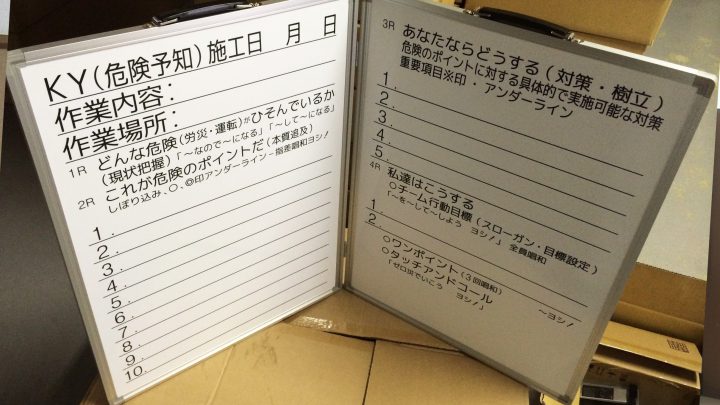 KY(危険予知)施工日　月　日
作業内容：
作業場所：
1R どんな危険(労災・運転)がひそんでいるか
(現状把握)「～なので～になる」「～して～になる」
2R これが危険のポイントだ(本質追及)
しぼり込み、○、◎印アンダーライン－指差唱和ヨシ！
1.
2.
3.
4.
5.
6.
7.
8.
9.
10.
3R あなたならどうする(対策・樹立)
危険のポイントに対する具体的で実施可能な対策
重要項目※印・アンダーライン
1.
2.
3.
4.
5.
4R 私達はこうする
○チーム行動目標(スローガン・目標設定)
「～を～して～しよう　ヨシ！」全員唱和
1.
2.
○ワンポイント(3回唱和)　～ヨシ！
○タッチアンドコール
「ゼロ災でいこう　ヨシ！」